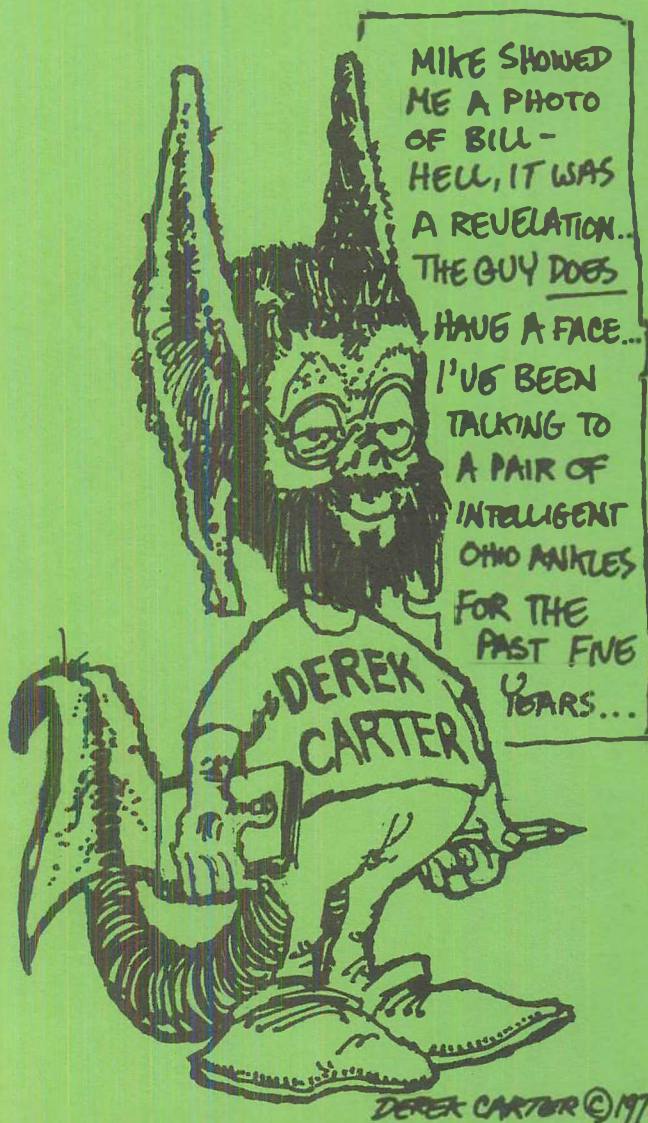 MIKE SHOWED
ME A PHOTO
OF BILL -
HELL, IT WAS
A REVELATION..
THE GUY DOES
HAVE A FACE...
I'VE BEEN
TALKING TO
A PAIR OF
INTELLIGENT
OHIO ANKLES
FOR THE
PAST FIVE
YEARS...
DEREK
CARTER
DEREK CARTER © 197